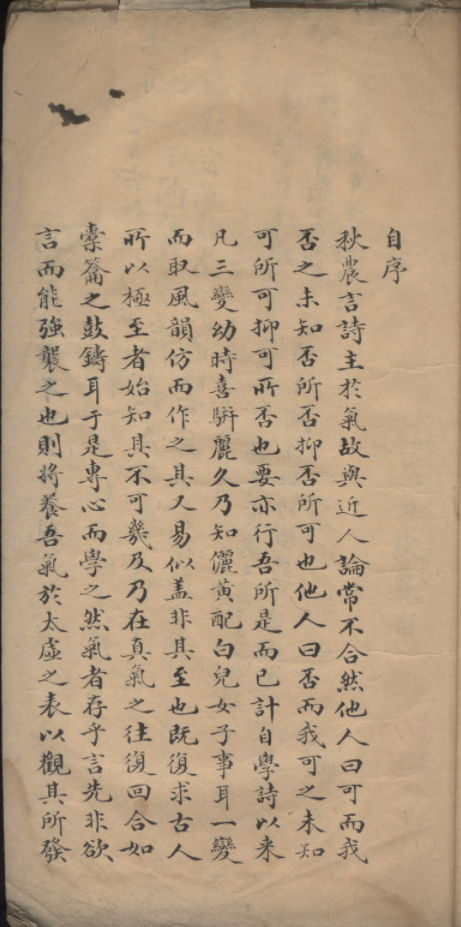 自序
秋農言詩主於氣故與近人論常不合然他人曰可而我
否之未知否所否抑否所可也他人曰否而我可之未知
可所可抑可所否也要亦行吾所是而已計自學詩以来
凡三變幼時喜駢麗久乃知儷黄配白兒女子事耳一變
而取風韻仿而作之其又易似盖非其至也既復求古人
所以極至者始知其不可幾及乃在真氣之往復回合如
槖籥之鼓鑄耳于是專心而學之然氣者存乎言先非欲
言而能強襲之也則将養吾氣於太虛之表以觀其所發